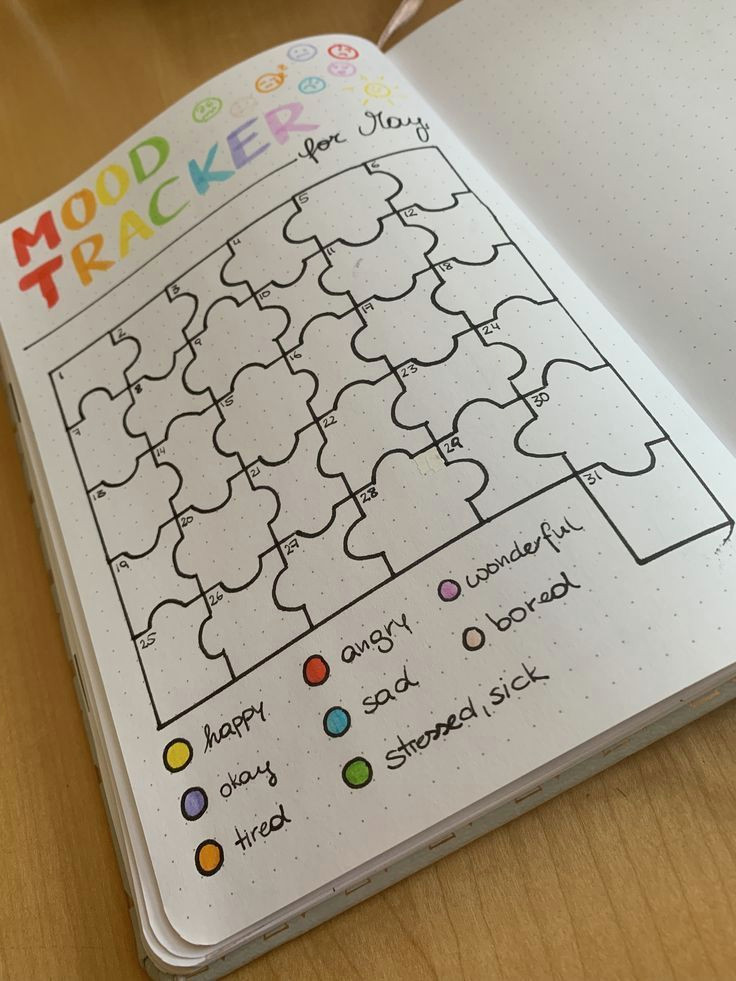 MOOD
TRACKER for May.
1 2 3 4 5 6
7 8 9 10 11 12
13 14 15 16 17 18
19 20 21 22 23 24
25 26 27 28 29 30
31
happy angry wonderful
okay sad bored
tired stressed, sick